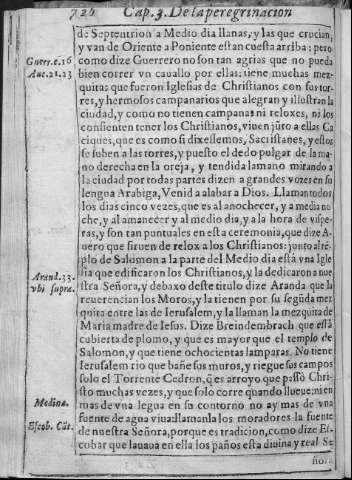 724 Cap. 3. De la peregrinacion
de Septentrion a Medio dia llanas, y las que crucian,
y van de Oriente a Poniente estan cuesta arriba: pero
Guerr.c.16 como dize Guerrero no son tan agrias que no pueda
Aue.21.23 bien correr vn cauallo por ellas: tiene muchas mez
quitas que fueron Iglesias de Christianos con sus tor-
res, y hermosos campanarios que alegran y illustran la
ciudad, y como no tienen campanas ni reloxes, ni los
consienten tener los Christianos, viuen jũto a ellas Ca
ciques, que es como si dixessemos, Sacristanes, y estos
se suben a las torres, y puesto el dedo pulgar de la ma-
no derecha en la oreja, y tendida la mano mirando a
la ciudad por todas partes dizen a grandes vozes en su
lengua Arabiga, Venid a alabar a Dios. Llaman todos
los dias cinco vezes, que es al anochecer, y a media no
che, y al amanecer y al medio dia, y a la hora de vispe-
ras, y son tan puntuales en esta ceremonia, que dize A-
uero que siruen de relox a los Christianos: junto al tẽ-
plo de Salomon a la parte del Medio dia està vna Igle
sia que edificaron los Christianos, y la dedicaron a nue
Arand.33. stra Señora, y debaxo deste titulo dize Aranda que la
vbi supra. reuerencian los Moros, y la tienen por su segũda mez
quita entre las de Ierusalem, y la llaman la mezquita de
Maria madre de Iesus. Dize Breindembrach que està
cubierta de plomo, y que es mayor que el templo de
Salomon, y que tiene ochocientas lamparas. No tiene
Ierusalem rio que bañe sus muros, y riegue sus campos
solo el Torrente Cedron, q̃ es arroyo que passò Chri-
sto muchas vezes, y que solo corre quando llueue: ni en
Medina. mas de vna legua en su contorno no ay mas de vna
fuente de agua viua: llamanla los moradores la fuente
Escob. Cat. de nuestra Señora, porque es tradicion, como dize Es-
cobar que lauaua en ella los paños esta diuina y real Se
ñora